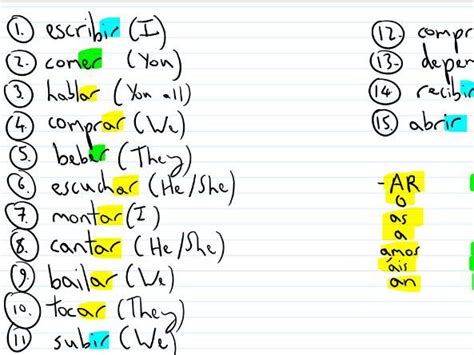 1. escribir (I)
2. comer (You)
3. hablar (You all)
4. comprar (We)
5. beber (They)
6. escuchar (He/She)
7. montar (I)
8. cantar (He/She)
9. bailar (We)
10. tocar (They)
11 subir (We)
12. compr
13. depen
14 recibir
15. abrir
-AR
o
as
a
amos
áis
an